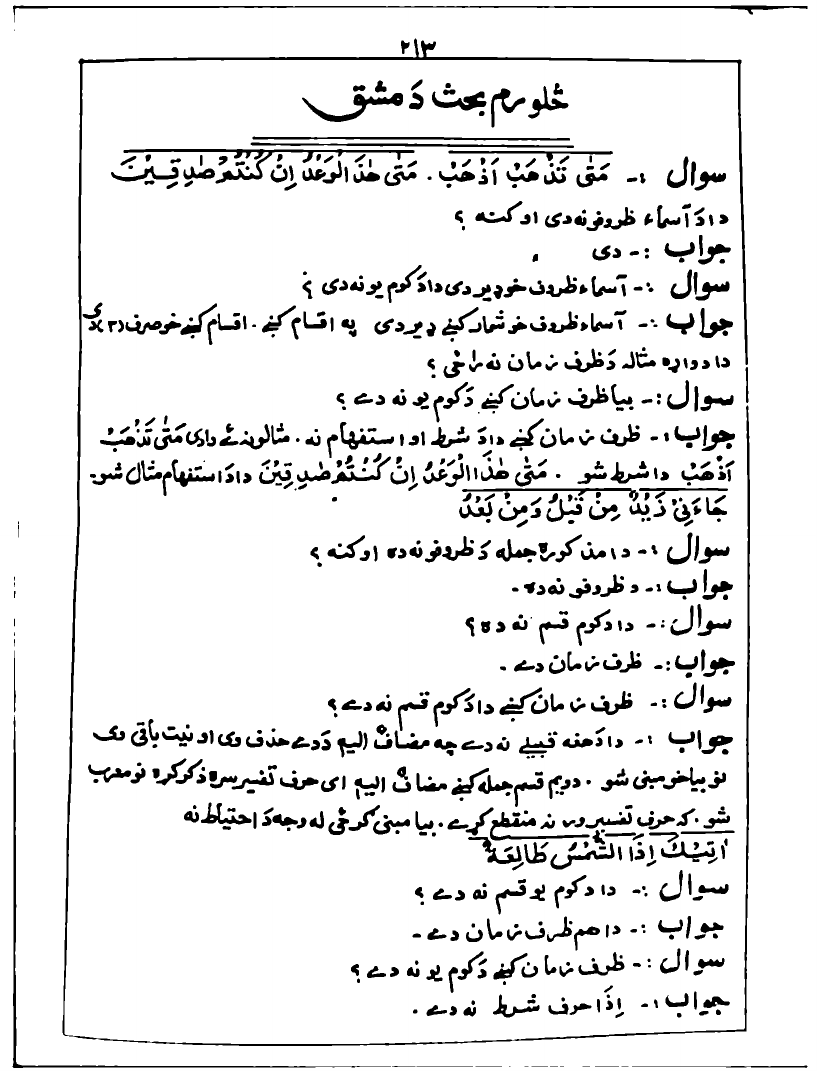 ۲۱۳
څلورم بحث دَ مشق
سوال :- مَتٰى تَذْهَبْ اَذْهَبْ . مَتٰى هٰذَا الْوَعْدُ اِنْ كُنْتُمْ صٰدِقِيْنَ
دا دَ آسماء ظروفو نه دی او کنه ؟
جواب :- دی
سوال :- آسماء ظروف خو ډیر دی دا دَ کوم یو نه دی ؟
جواب :- آسماء ظروف خو شمار کښے ډیر دی په اقسام کښے . اقسام کښے خو صرف (۳) دی
دا دواړه مثاله دَ ظرف زمان نه راځی ؟
سوال :- بیا ظرف زمان کښے دَ کوم یو نه دے ؟
جواب :- ظرف زمان کښے دا دَ شرط او استفهام نه . مثالونه ئے دا دی مَتٰى تَذْهَبْ
اَذْهَبْ دا شرط شو . مَتٰى هٰذَا الْوَعْدُ اِنْ كُنْتُمْ صٰدِقِيْنَ دا دَ استفهام مثال شو-
جَاءَنِیْ زَيْدٌ مِنْ قَبْلُ وَمِنْ بَعْدُ
سوال :- دا مذکوره جمله دَ ظروفو نه ده او کنه ؟
جواب :- د ظروفو نه ده -
سوال :- دا د کوم قسم نه ده ؟
جواب :- ظرف زمان دے .
سوال :- ظرف زمان کښے دا دَ کوم قسم نه دے ؟
جواب :- دا دَ هغه قبیلے نه دے چه مضاف الیه دَ دے حذف وی او نیت باقی وی
نو بیا خو مبنی شو . دویم قسم جمله کښے مضاف الیه ای حرف تفسیر سره ذکر کړه نو معرب
شو . که حرف تفسیر ور نه منقطع کړے . بیا مبنی گرځی له وجه دَ احتیاط نه
اٰتِيْكَ اِذَا الشَّمْسُ طَالِعَةٌ
سوال :- دا د کوم یو قسم نه دے ؟
جواب :- دا هم ظرف زمان دے -
سوال :- ظرف زمان کښے دَ کوم یو نه دے ؟
جواب :- اِذَا حرف شرط نه دے .